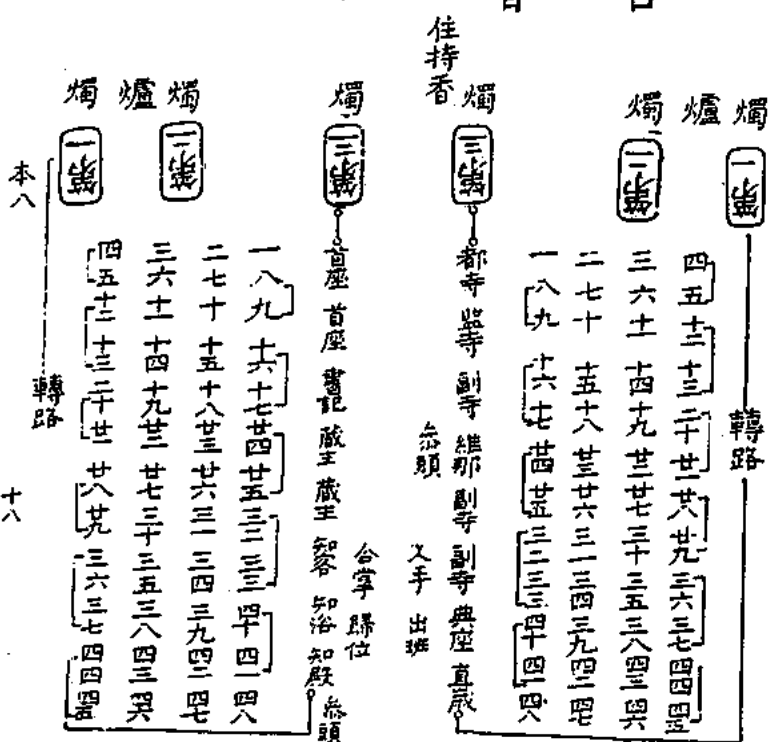 燭 第一 轉路
爐
四 五 十二 十三 二十 廿一 廿八 廿九 三六 三七 四四 四五
燭 第二
三 六 十一 十四 十九 廿二 廿七 三十 三五 三八 四三 四六
二 七 十 十五 十八 廿三 廿六 三一 三四 三九 四二 四七
一 八 九 十六 十七 廿四 廿五 三二 三三 四十 四一 四八
燭 第三 都寺 監寺 副寺 維那 副寺 副寺 典座 直歲
住持香 叅頭
叉手 出班
合掌 歸位
燭 第三 首座 首座 書記 藏主 藏主 知客 知浴 知殿 叅頭
一 八 九 十六 十七 廿四 廿五 三二 三三 四十 四一 四八
二 七 十 十五 十八 廿三 廿六 三一 三四 三九 四二 四七
燭 第二
三 六 十一 十四 十九 廿二 廿七 三十 三五 三八 四三 四六
爐
四 五 十二 十三 二十 廿一 廿八 廿九 三六 三七 四四 四五
燭 第一
轉路
本八 十八